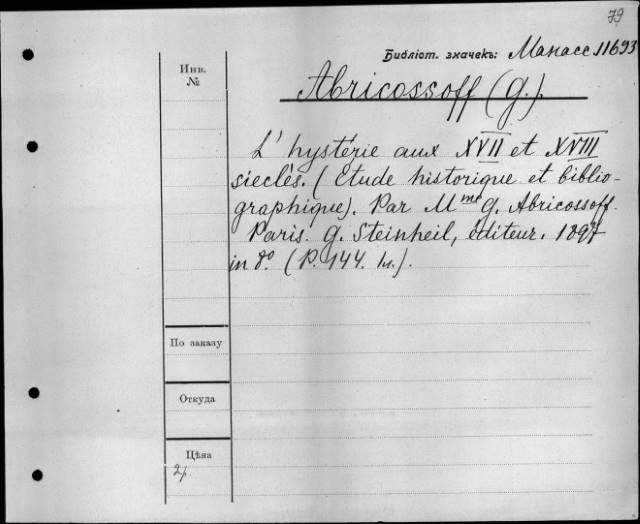 79
Библіот. значекъ: Манасс 11693
Инв.
№
Abricossoff (G.).
L'hystérie aux XVII et XVIII
sieclès. (Etude historique et biblio-
graphique). Par Mme G. Abricossoff.
Paris. G. Steinheil, éditeur. 1897
in 8º. (P. 144.
По заказу
Откуда
Цѣна
2 р.